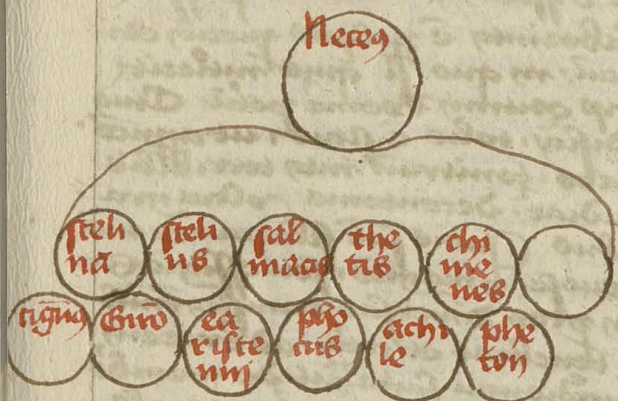 Nereus
steli
na
steli
us
sal
macis
the
tis
chi
me
nes
Giro
ea
riste
pho
cus
achi
le
phe
ton